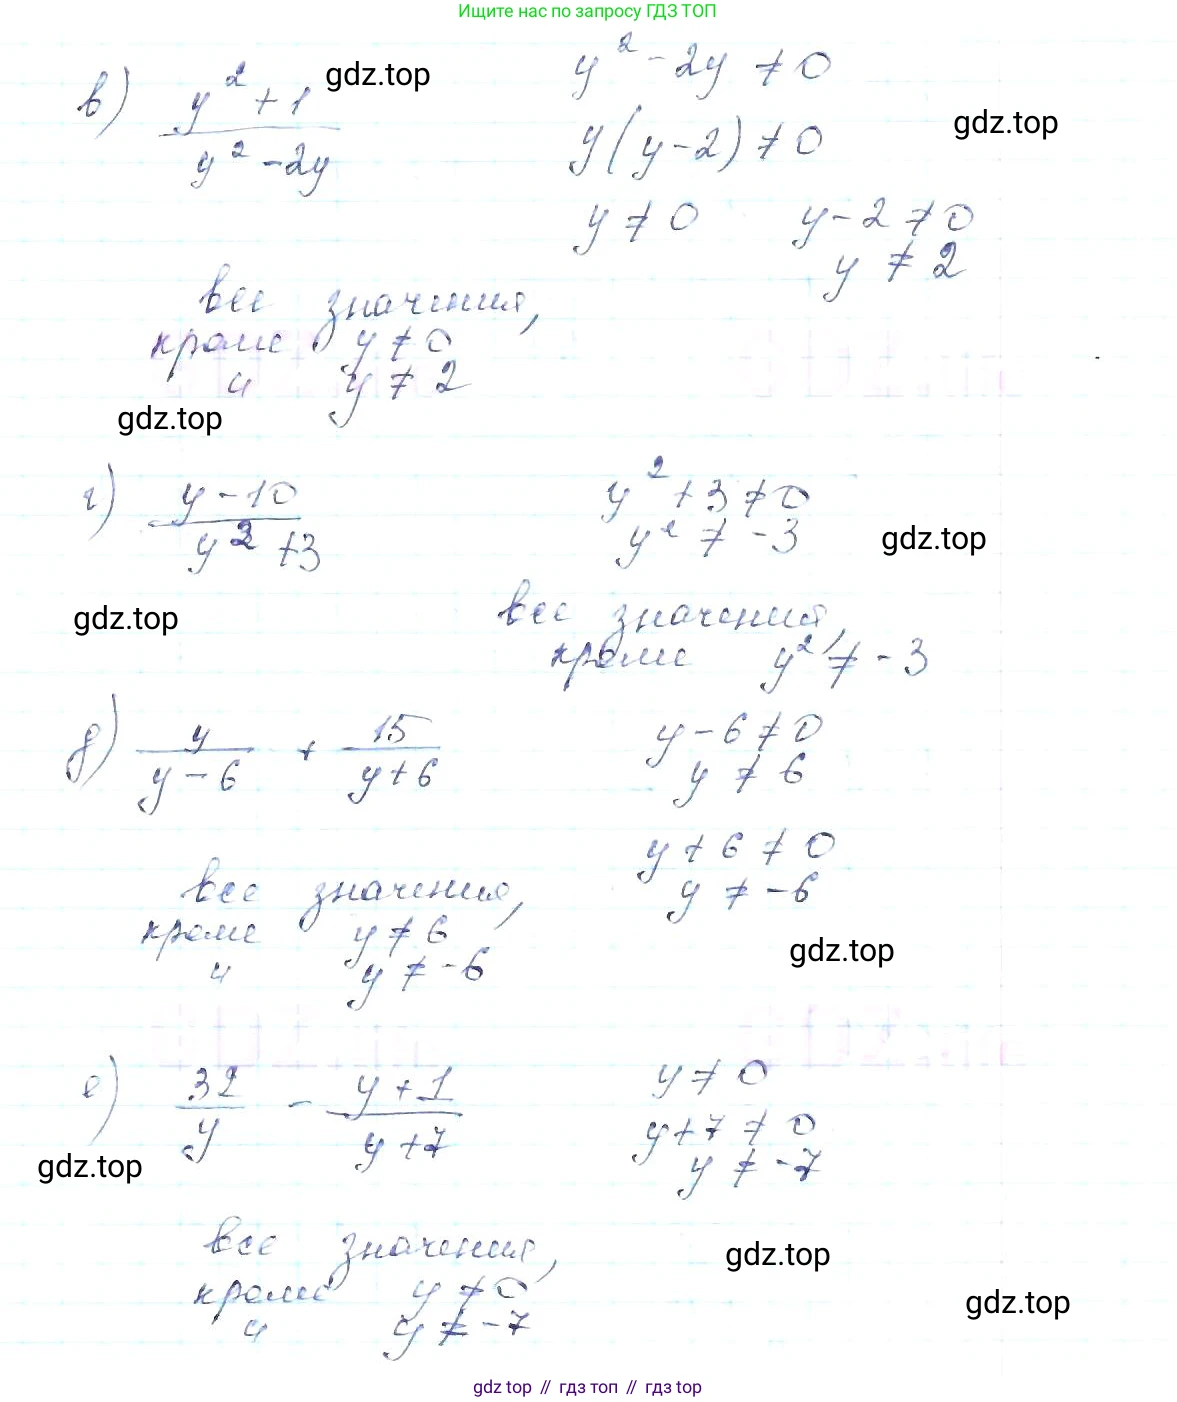 Ищите нас по запросу ГДЗ ТОП
в) (y² + 1)/(y² - 2y)
gdz.top
y² - 2y ≠ 0
gdz.top
y(y - 2) ≠ 0
y ≠ 0 y - 2 ≠ 0
y ≠ 2
все значения,
кроме y ≠ 0
и y ≠ 2
gdz.top
г) (y - 10)/(y² + 3)
y² + 3 ≠ 0
y² ≠ -3
gdz.top
gdz.top
все значения,
кроме y² ≠ -3
д) y/(y - 6) + 15/(y + 6)
y - 6 ≠ 0
y ≠ 6
y + 6 ≠ 0
y ≠ -6
все значения,
кроме y ≠ 6
и y ≠ -6
gdz.top
е) 32/y - (y + 1)/(y + 7)
y ≠ 0
y + 7 ≠ 0
y ≠ -7
gdz.top
все значения,
кроме y ≠ 0
и y ≠ -7
gdz.top
gdz.top
gdz top // гдз топ // гдз top